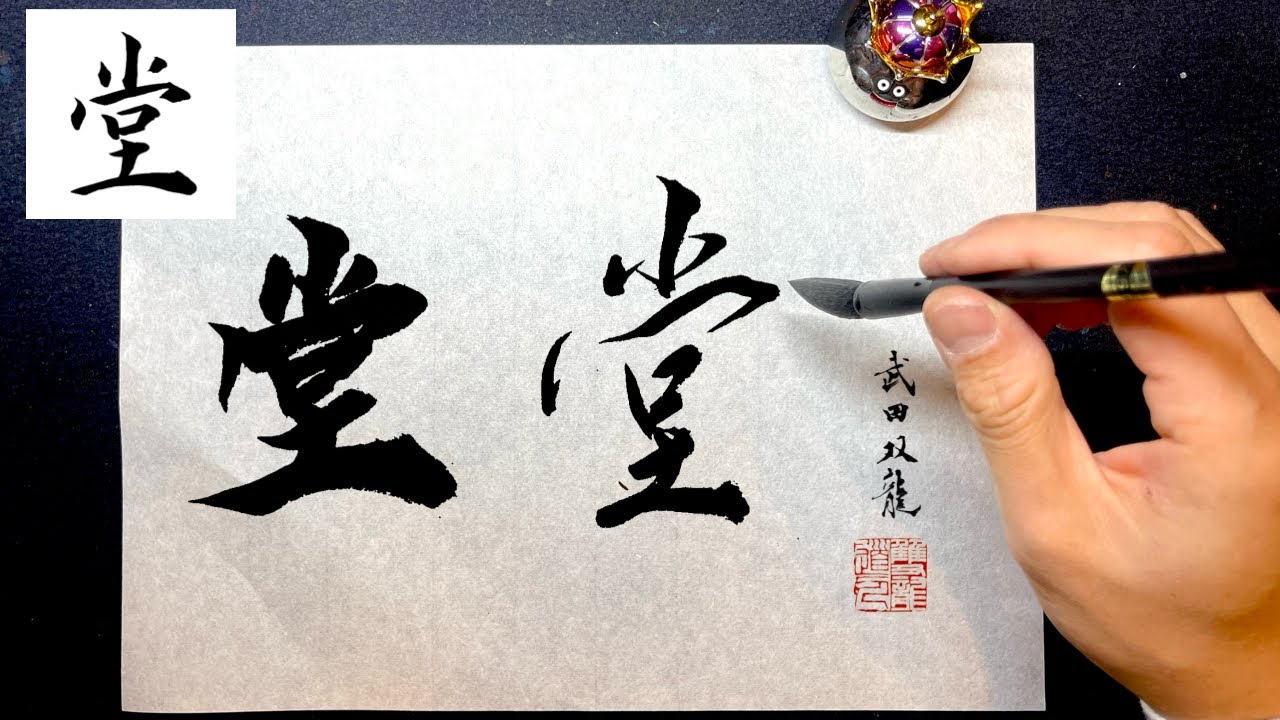 堂
堂 堂
武田双龍